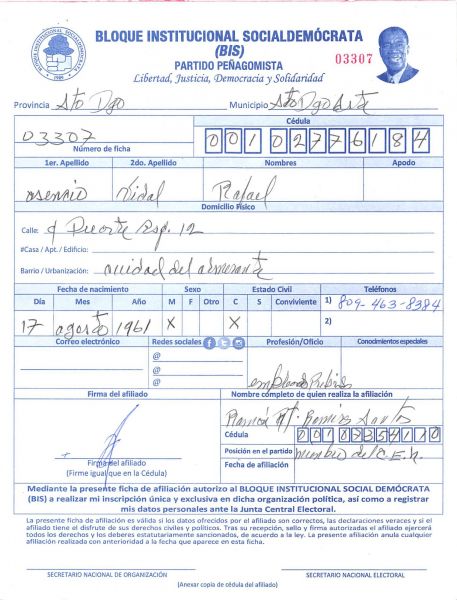 BLOQUE INSTITUCIONAL SOCIALDEMÓCRATA
(BIS)
PARTIDO PEÑAGOMISTA
Libertad, Justicia, Democracia y Solidaridad
03307
Provincia Sto Dgo Municipio Sto Dgo Este
Cédula
03307 00102776184
Número de ficha
1er. Apellido 2do. Apellido Nombres Apodo
asencio Vidal Rafael
Domicilio Físico
Calle: Esq. 12
#Casa / Apt. / Edificio:
Barrio / Urbanización: ciudad del almirante
Fecha de nacimiento Sexo Estado Civil Teléfonos
Día Mes Año M F Otro C S Conviviente 1) 809-463-8384
17 agosto 1961 X X 2)
Correo electrónico Redes sociales Profesión/Oficio Conocimientos especiales
@
@
@
empleado Publico
Firma del afiliado Nombre completo de quien realiza la afiliación
Ramón Ramirez Santos
Cédula
Posición en el partido miembro del C.E.N.
Firma del afiliado
(Firme igual que en la Cédula)
Fecha de afiliación
Mediante la presente ficha de afiliación autorizo al BLOQUE INSTITUCIONAL SOCIAL DEMÓCRATA
(BIS) a realizar mi inscripción única y exclusiva en dicha organización política, así como a registrar
mis datos personales ante la Junta Central Electoral.
La presente ficha de afiliación es válida si los datos ofrecidos por el afiliado son correctos, las declaraciones veraces y si el
afiliado tiene el disfrute de sus derechos civiles y políticos. Tras su recepción, sello y firma autorizadas el afiliado ejercerá
todos los derechos y los deberes estatutariamente sancionados, de acuerdo a la ley. La presente afiliación anula cualquier
afiliación realizada con anterioridad a la fecha que aparece en esta ficha.
SECRETARIO NACIONAL DE ORGANIZACIÓN SECRETARIO NACIONAL ELECTORAL
(Anexar copia de cédula del afiliado)